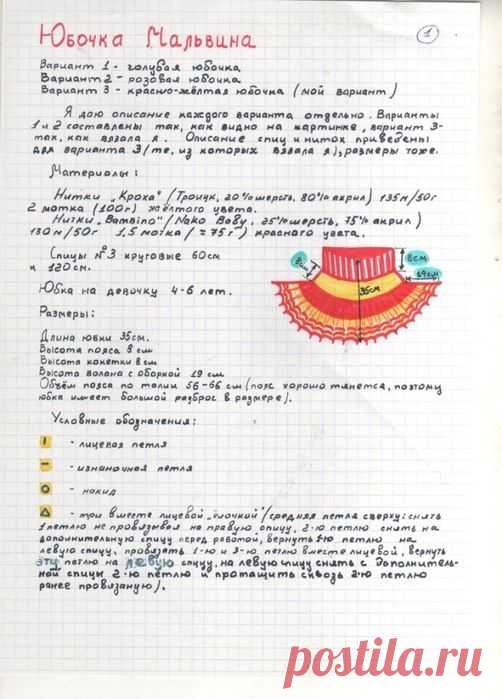 Юбочка Мальвина
1
Вариант 1 - голубая юбочка
Вариант 2 - розовая юбочка
Вариант 3 - красно-жёлтая юбочка (мой вариант)
Я даю описание каждого варианта отдельно. Варианты
1 и 2 составлены так, как видно на картинке, вариант 3-
так, как вязала я. Описание спиц и ниток приведены
для варианта 3 (те, из которых вязала я), размеры тоже.
Материалы:
Нитки "Кроха" (Троицк, 20% шерсть, 80% акрил) 135м/50г
2 мотка (100г) жёлтого цвета.
Нитки "Bambino" (Nako Baby, 25% шерсть, 75% акрил)
130м/50г 1,5 мотка (≈75г) красного цвета.
Спицы №3 круговые 60см
и 120см.
Юбка на девочку 4-6 лет.
8см
8см
35см
19см
Размеры:
Длина юбки 35см.
Высота пояса 8 см
Высота кокетки 8 см
Высота волана с оборкой 19 см
Объём пояса по талии 56-66 см (пояс хорошо тянется, поэтому
юбка имеет большой разброс в размере).
Условные обозначения:
- лицевая петля
- изнаночная петля
- накид
- три вместе лицевой "ёлочкой" (средняя петля сверху: снять
1 петлю не провязывая на правую спицу, 2-ю петлю снять на
дополнительную спицу перед работой, вернуть 1ю петлю на
левую спицу, провязать 1-ю и 3-ю петлю вместе лицевой, вернуть
эту петлю на левую спицу, на левую спицу снять с дополнитель-
ной спицы 2-ю петлю и протащить сквозь 2-ю петлю
ранее провязаную).
postila.ru